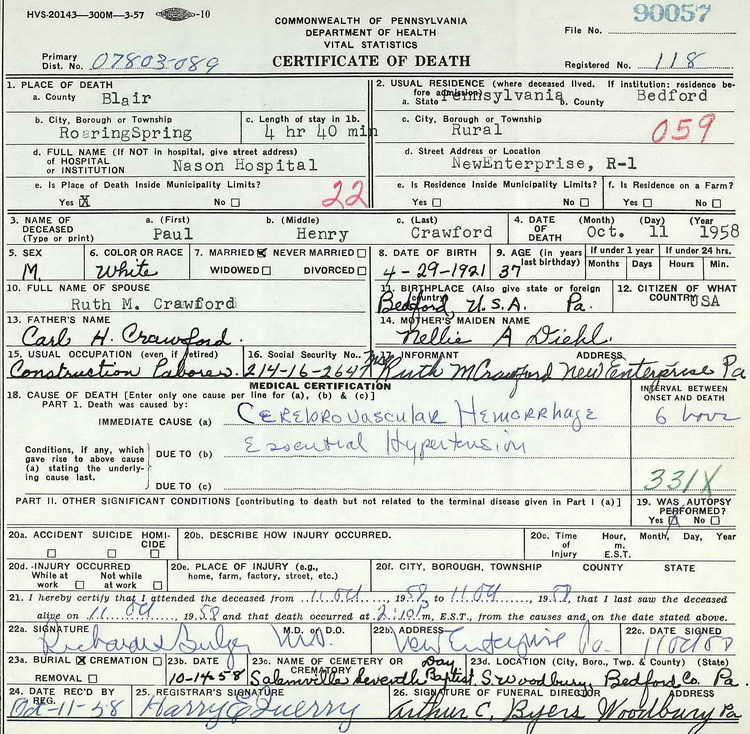 HVS-20143—300M—3-57 -10
COMMONWEALTH OF PENNSYLVANIA
DEPARTMENT OF HEALTH
VITAL STATISTICS
CERTIFICATE OF DEATH
90057
File No.
Primary Dist. No. 07803-089
Registered No. 118
1. PLACE OF DEATH
a. County Blair
2. USUAL RESIDENCE (where deceased lived. If institution: residence before admission)
a. State Pennsylvania b. County Bedford
b. City, Borough or Township RoaringSpring
c. Length of stay in 1b. 4 hr 40 min
c. City, Borough or Township Rural
059
d. FULL NAME (If NOT in hospital, give street address) OF HOSPITAL OR INSTITUTION Nason Hospital
d. Street Address or Location NewEnterprise, R-1
e. Is Place of Death Inside Municipality Limits? Yes X No
22
e. Is Residence Inside Municipality Limits? Yes No
f. Is Residence on a Farm? Yes No
3. NAME OF DECEASED (Type or print)
a. (First) Paul b. (Middle) Henry c. (Last) Crawford
4. DATE OF DEATH (Month) (Day) (Year) Oct. 11 1958
5. SEX M.
6. COLOR OR RACE White
7. MARRIED NEVER MARRIED
WIDOWED DIVORCED
8. DATE OF BIRTH 4-29-1921
9. AGE (in years last birthday) 37
If under 1 year Months Days
If under 24 hrs. Hours Min.
10. FULL NAME OF SPOUSE Ruth M. Crawford
11. BIRTHPLACE (Also give state or foreign country) Bedford, U.S.A. Pa.
12. CITIZEN OF WHAT COUNTRY USA
13. FATHER'S NAME Carl H. Crawford.
14. MOTHER'S MAIDEN NAME Nellie A Diehl.
15. USUAL OCCUPATION (even if retired) Construction Laborer.
16. Social Security No. 214-16-2647
17. INFORMANT ADDRESS Mrs Ruth M Crawford New Enterprise Pa
MEDICAL CERTIFICATION
18. CAUSE OF DEATH [Enter only one cause per line for (a), (b) & (c)]
INTERVAL BETWEEN ONSET AND DEATH
PART 1. Death was caused by:
IMMEDIATE CAUSE (a) Cerebrovascular Hemorrhage 6 hours
Conditions, if any, which gave rise to above cause (a) stating the underlying cause last.
DUE TO (b) Essential Hypertension
DUE TO (c)
331X
PART II. OTHER SIGNIFICANT CONDITIONS [contributing to death but not related to the terminal disease given in Part I (a)]
19. WAS AUTOPSY PERFORMED? Yes No
20a. ACCIDENT SUICIDE HOMICIDE
20b. DESCRIBE HOW INJURY OCCURRED.
20c. Time of Injury Hour, m. E.S.T. Month, Day, Year
20d. INJURY OCCURRED While at work Not while at work
20e. PLACE OF INJURY (e.g., home, farm, factory, street, etc.)
20f. CITY, BOROUGH, TOWNSHIP COUNTY STATE
21. I hereby certify that I attended the deceased from 11 Oct, 1958 to 11 Oct, 1958, that I last saw the deceased
alive on 11 Oct, 1958 and that death occurred at 2:10 P m, E.S.T., from the causes and on the date stated above.
22a. SIGNATURE M.D. or D.O. Richard Bulger M.D.
22b. ADDRESS New Enterprise Pa.
22c. DATE SIGNED 11 Oct 58
23a. BURIAL X CREMATION REMOVAL
23b. DATE 10-14-58
23c. NAME OF CEMETERY OR CREMATORY Salemville Seventh Day Baptist
23d. LOCATION (City, Boro., Twp. & County) (State) S. Woodbury, Bedford Co. Pa.
24. DATE REC'D BY REG. Oct-11-58
25. REGISTRAR'S SIGNATURE Harry E Querry
26. SIGNATURE OF FUNERAL DIRECTOR ADDRESS Arthur C. Byers Woodbury Pa